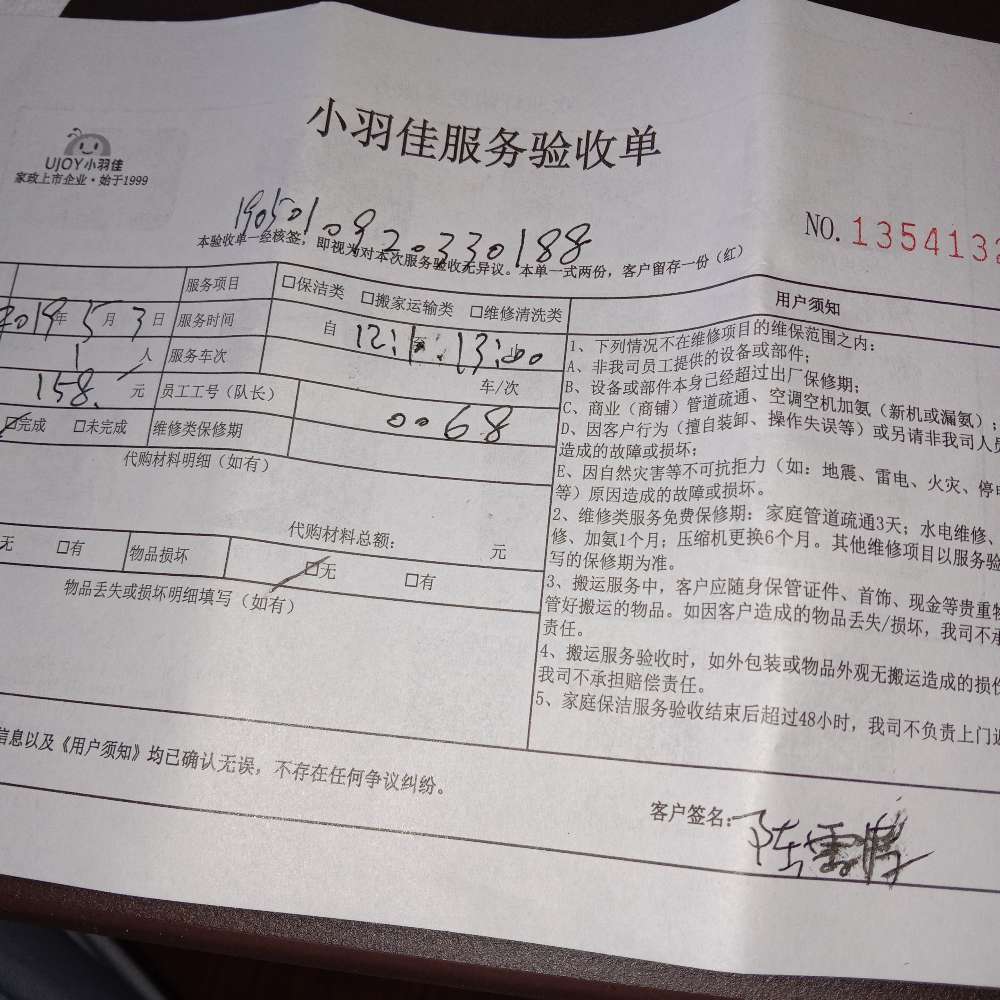 小羽佳服务验收单
UJOY小羽佳
家政上市企业·始于1999
NO.135413
1905010920330188
本验收单一经核签，即视为对本次服务验收无异议。本单一式两份，客户留存一份（红）
服务项目 □保洁类 □搬家运输类 □维修清洗类
2019年5月3日 服务时间 自 12:1 至 13:00 止
1人 服务车次 车/次
158.元 员工工号（队长） 0068
☑完成 □未完成 维修类保修期
代购材料明细（如有）
代购材料总额： 元
无 □有 物品损坏 ☑无 □有
物品丢失或损坏明细填写（如有）
用户须知
1、下列情况不在维修项目的维保范围之内：
A、非我司员工提供的设备或部件；
B、设备或部件本身已经超过出厂保修期；
C、商业（商铺）管道疏通、空调空机加氨（新机或漏氨）；
D、因客户行为（擅自装卸、操作失误等）或另请非我司人员
造成的故障或损坏；
E、因自然灾害等不可抗拒力（如：地震、雷电、火灾、停电
等）原因造成的故障或损坏。
2、维修类服务免费保修期：家庭管道疏通3天；水电维修、
修、加氨1个月；压缩机更换6个月。其他维修项目以服务验
写的保修期为准。
3、搬运服务中，客户应随身保管证件、首饰、现金等贵重物
管好搬运的物品。如因客户造成的物品丢失/损坏，我司不承
责任。
4、搬运服务验收时，如外包装或物品外观无搬运造成的损伤
我司不承担赔偿责任。
5、家庭保洁服务验收结束后超过48小时，我司不负责上门返
信息以及《用户须知》均已确认无误，不存在任何争议纠纷。
客户签名：陈雪